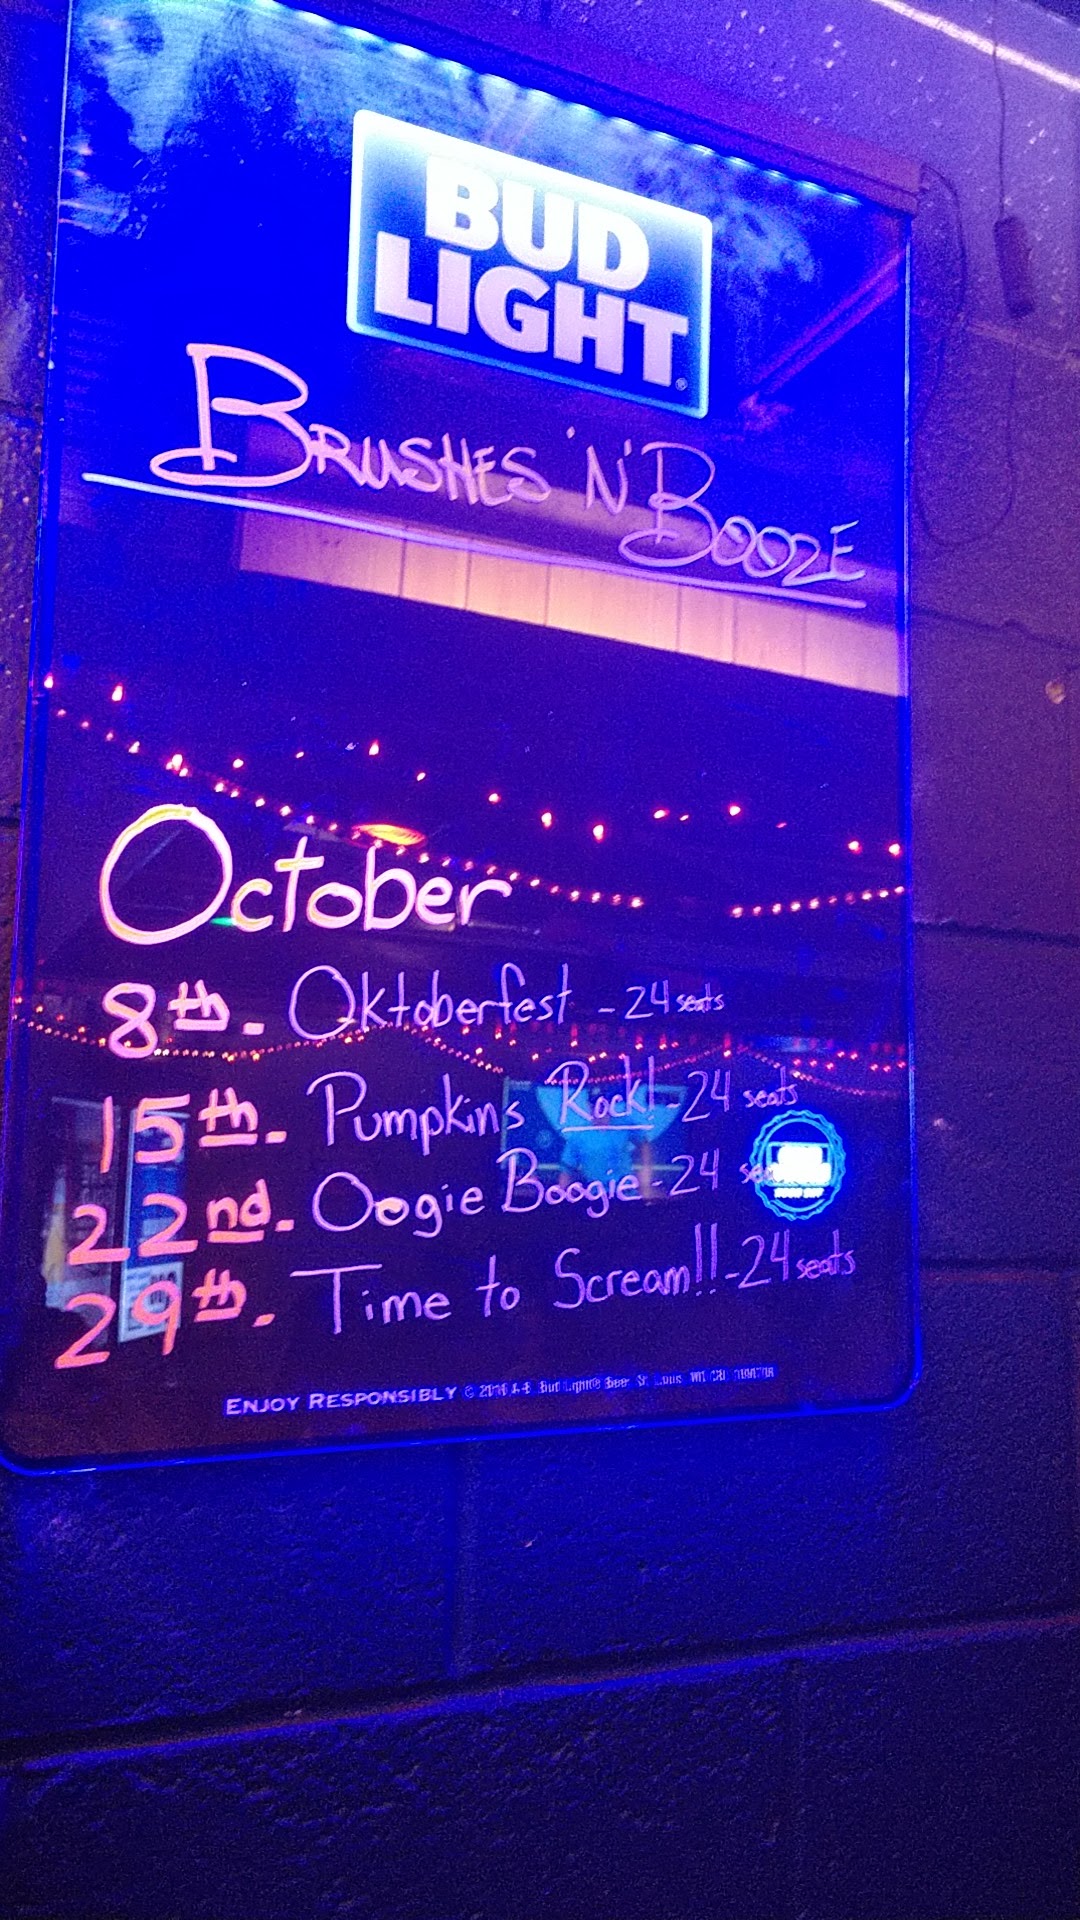 BUD
LIGHT
BRUSHES 'N' BOOZE
October
8th. Oktoberfest - 24 seats
15th. Pumpkins Rock! - 24 seats
22nd. Oogie Boogie - 24
29th. Time to Scream!! - 24 seats
ENJOY RESPONSIBLY © A-B, Bud Light® Beer, St. Louis, MO